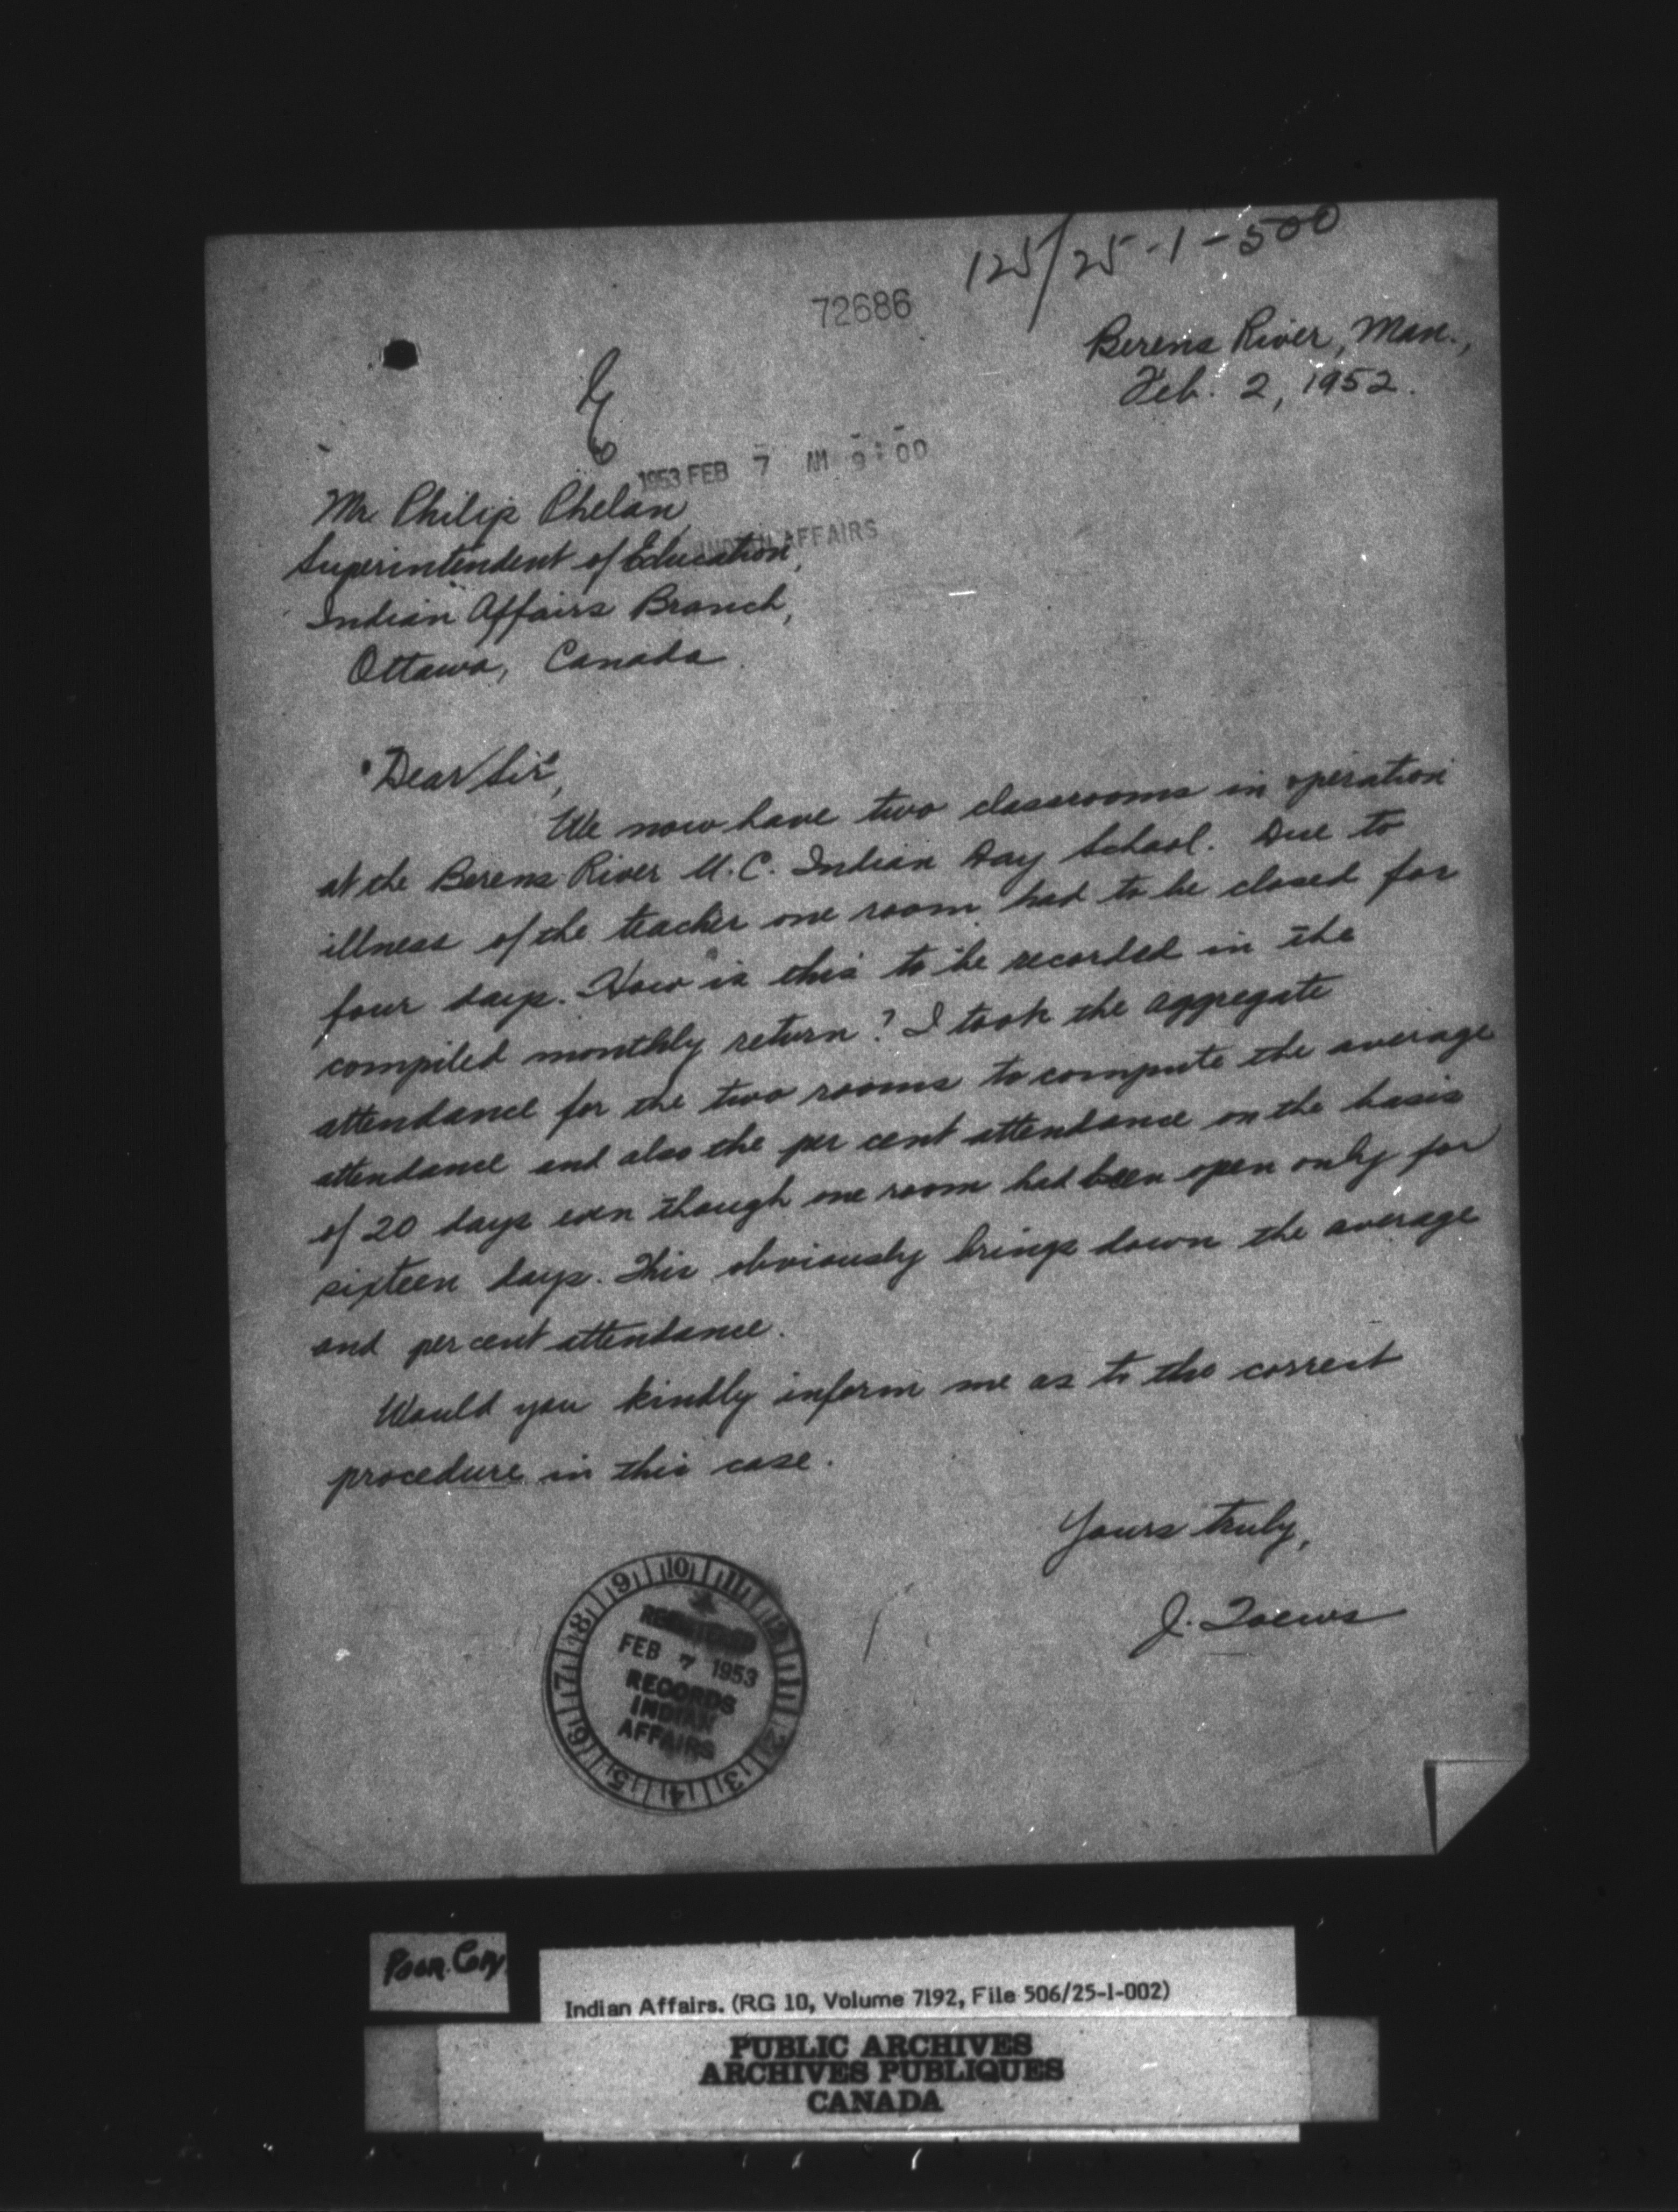 125/25-1-500
72686
Berens River, Man.,
Feb. 2, 1952.
1953 FEB 7 AM 9:00
Mr. Philip Phelan,
INDIAN AFFAIRS
Superintendent of Education,
Indian Affairs Branch,
Ottawa, Canada.
Dear Sir,
We now have two classrooms in operation
at the Berens River U.C. Indian Day School. Due to
illness of the teacher one room had to be closed for
four days. How is this to be recorded in the
compiled monthly return? I took the aggregate
attendance for the two rooms to compute the average
attendance and also the per cent attendance on the basis
of 20 days even though one room had been open only for
sixteen days. This obviously brings down the average
and per cent attendance.
Would you kindly inform me as to the correct
procedure in this case.
Yours truly,
J. Toews
9 10 11 12 1 2 3 4 5 6 7 8
REGISTERED
FEB 7 1953
RECORDS
INDIAN
AFFAIRS
Poor Copy
Indian Affairs. (RG 10, Volume 7192, File 506/25-1-002)
PUBLIC ARCHIVES
ARCHIVES PUBLIQUES
CANADA